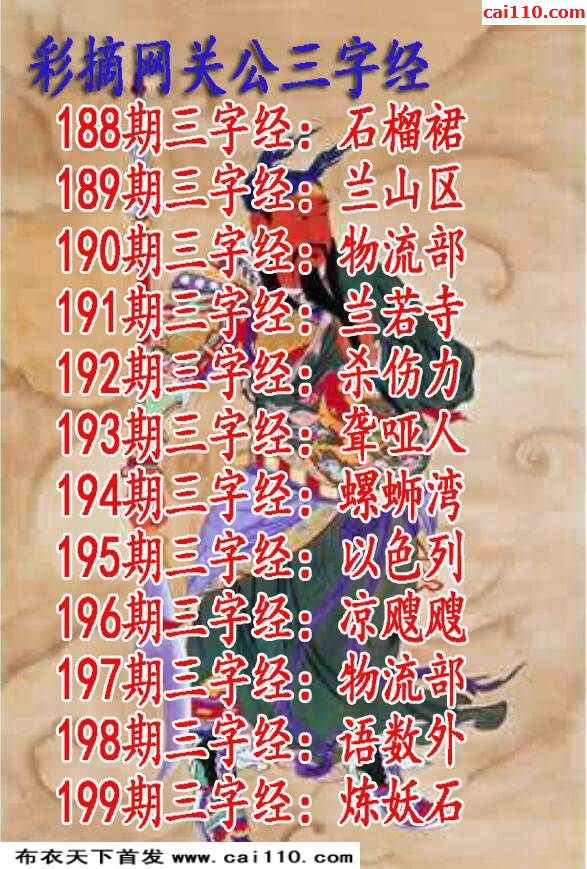 cai110.com
彩摘网关公三字经
188期三字经：石榴裙
189期三字经：兰山区
190期三字经：物流部
191期三字经：兰若寺
192期三字经：杀伤力
193期三字经：聋哑人
194期三字经：螺蛳湾
195期三字经：以色列
196期三字经：凉飕飕
197期三字经：物流部
198期三字经：语数外
199期三字经：炼妖石
布衣天下首发 www.cai110.com